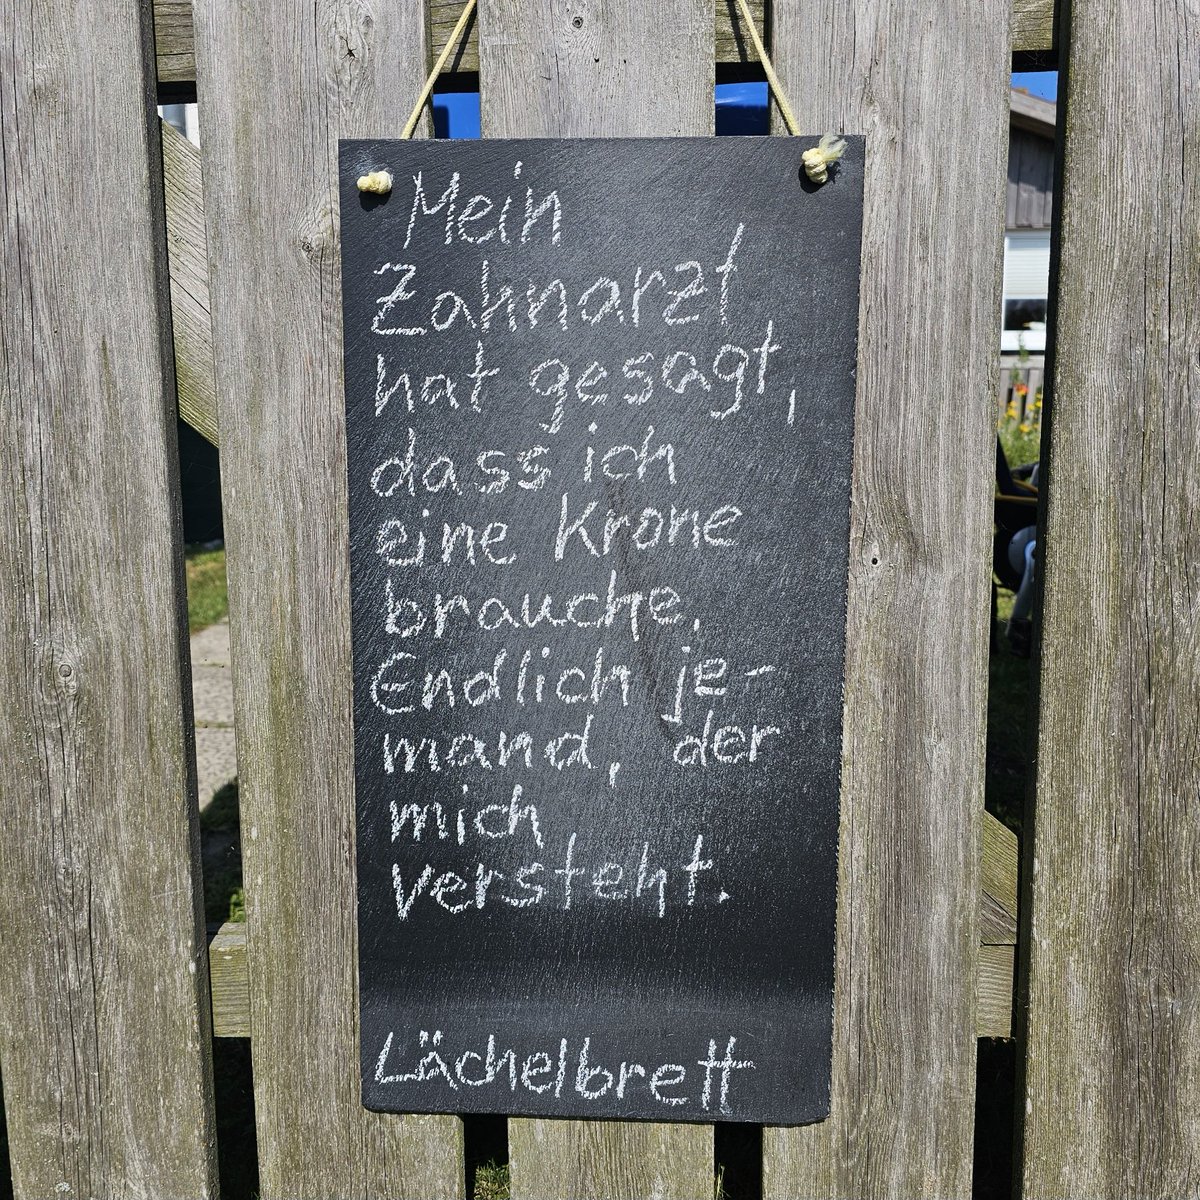 Mein
Zahnarzt
hat gesagt,
dass ich
eine Krone
brauche.
Endlich je-
mand, der
mich
versteht.
Lächelbrett